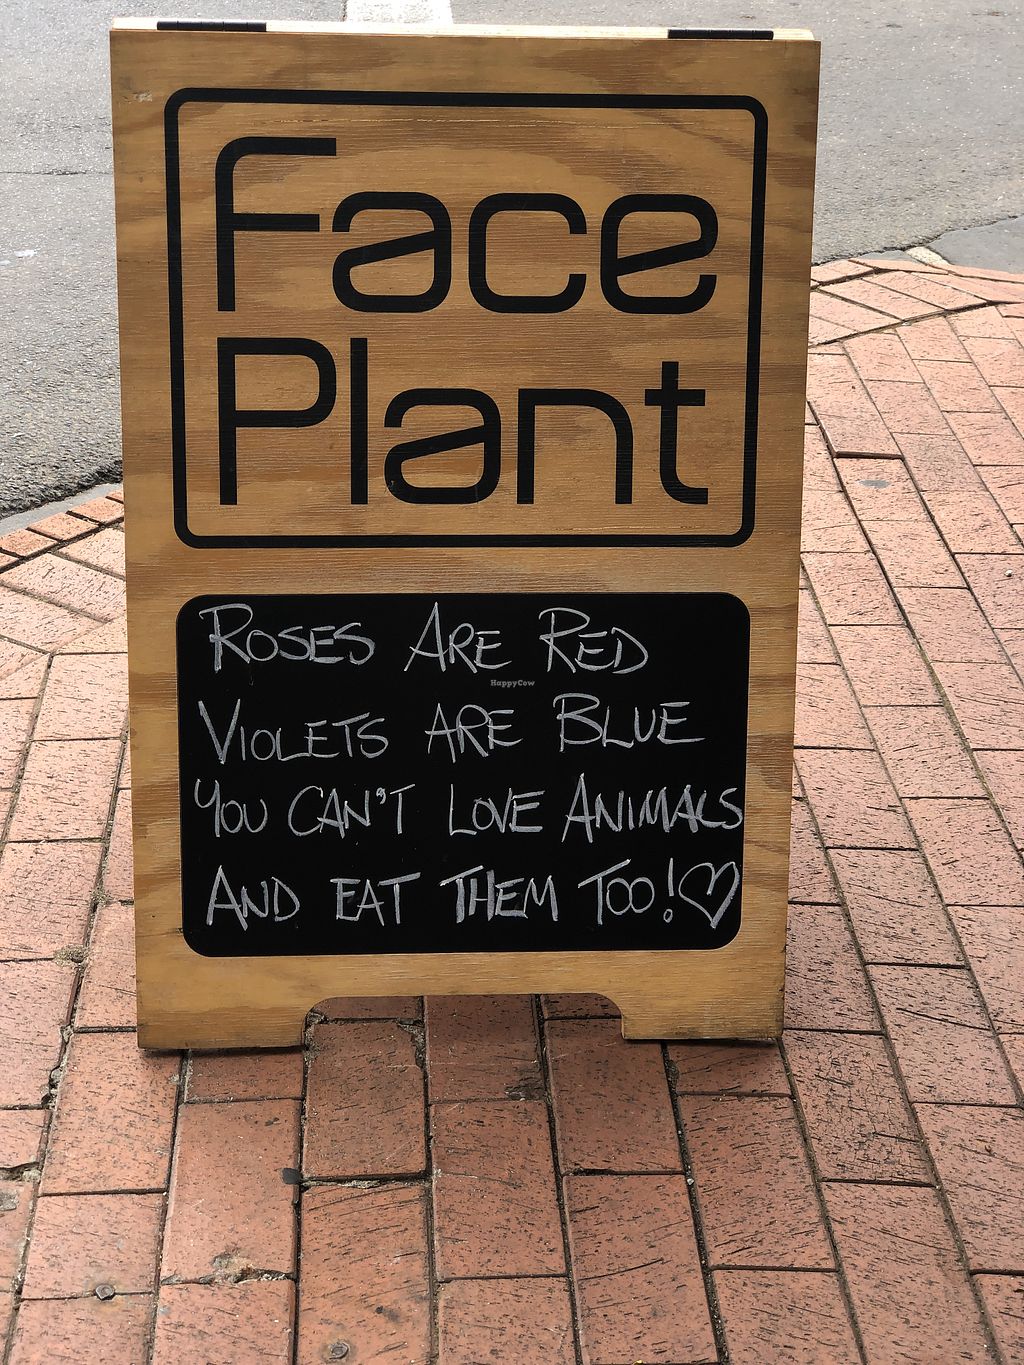 Face
Plant
ROSES ARE RED
HappyCow
VIOLETS ARE BLUE
YOU CAN'T LOVE ANIMALS
AND EAT THEM TOO!♡